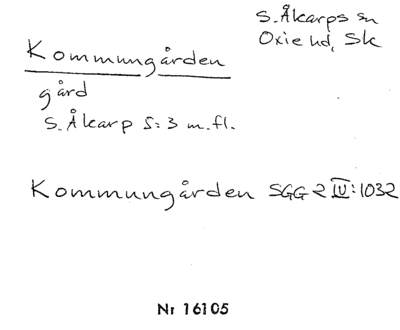 S. Åkarps sn
Oxie hd, Sk
Kommungården
gård
S. Åkarp S:3 m.fl.
Kommungården SGG 2 IV:1032
Nr 16105